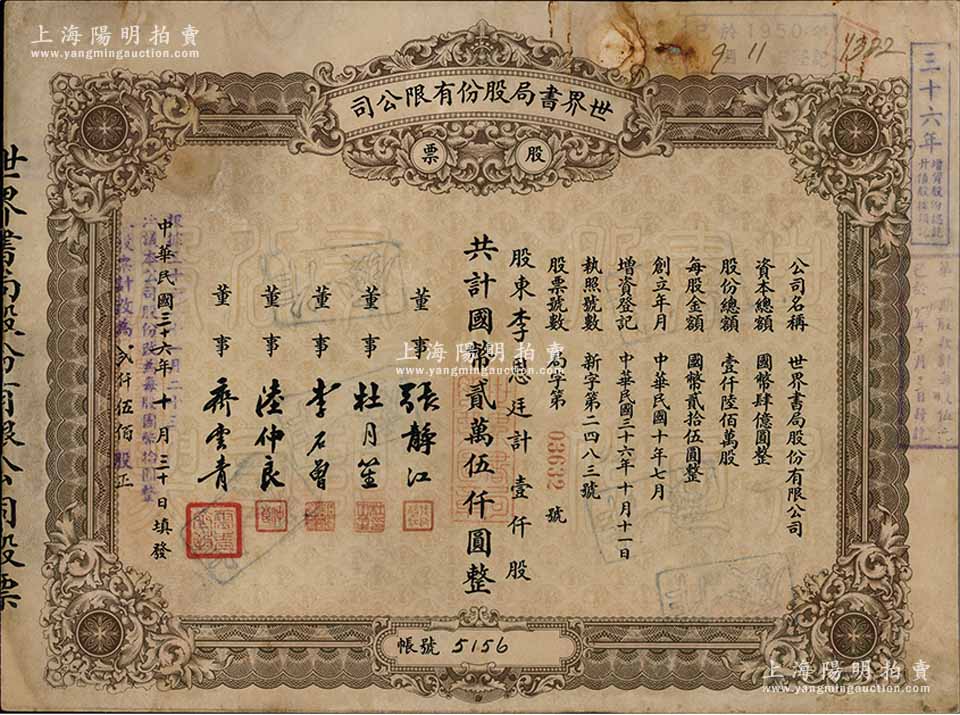 上海陽明拍賣
www.yangmingauction.com
1950
9 11
1322
世界書局股份有限公司
股票
三十六年
公司名稱 世界書局股份有限公司
資本總額 國幣肆億圓整
股份總額 壹仟陸佰萬股
每股金額 國幣貳拾伍圓整
創立年月 中華民國十年七月
增資登記 中華民國三十六年十月十一日
執照號數 新字第二四八三號
股票號數 局字第 03632 號
股東李恩廷計壹仟股
共計國幣貳萬伍仟圓整
董事 張靜江
董事 杜月笙
董事 李石曾
董事 陸仲良
董事 齊雲青
中華民國三十六年十月三十日填發
貳仟伍佰股正
世界書局股份有限公司股票
上海陽明拍賣
www.yangmingauction.com
帳號 5156
上海陽明拍賣
www.yangmingauction.com